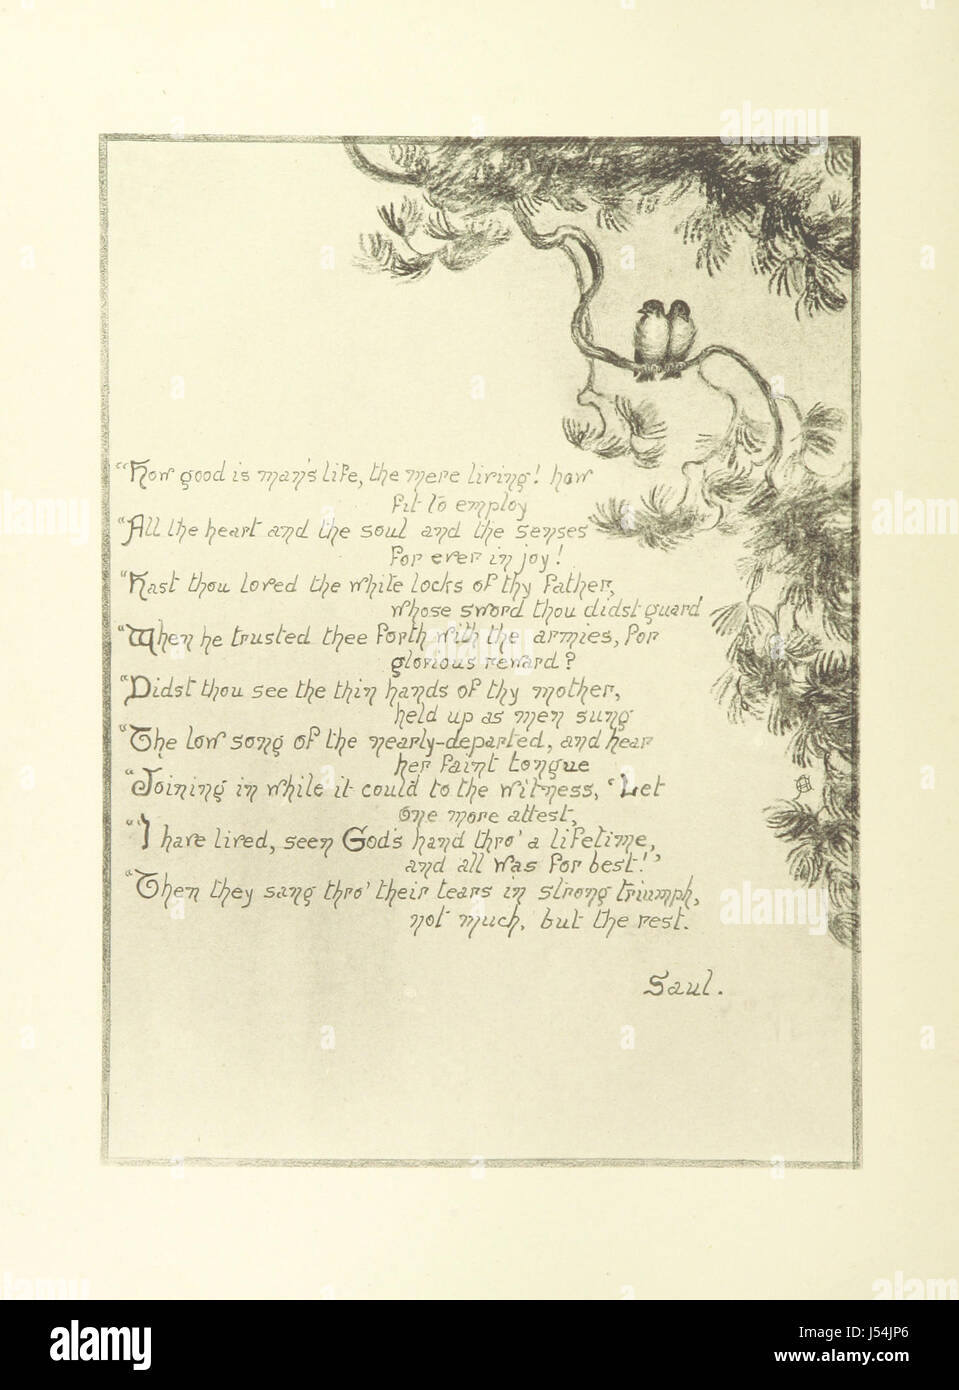 “How good is man's life, the mere living! how
fit to employ
“All the heart and the soul and the senses
for ever in joy!
“Hast thou loved the white locks of thy father,
whose sword thou didst guard
“When he trusted thee forth with the armies, for
glorious reward?
“Didst thou see the thin hands of thy mother,
held up as men sung
“The low song of the nearly-departed, and hear
her faint tongue
“Joining in while it could to the witness, ‘Let
one more attest,
“‘I have lived, seen God's hand thro' a lifetime,
and all was for best!’
“Then they sang thro' their tears in strong triumph,
not much, but the rest.
Saul.
alamy
Image ID: J54JP6
www.alamy.com